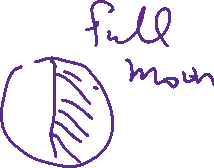 full
moon